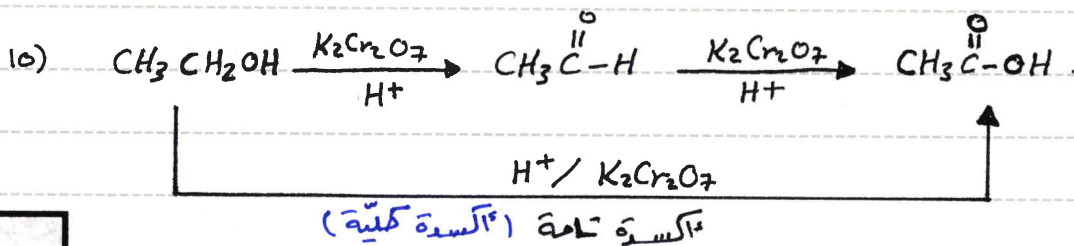 O O
10) CH3CH2OH K2Cr2O7 CH3C-H K2Cr2O7 CH3C-OH.
H+ H+
H+/ K2Cr2O7
أكسدة تامة (أكسدة كليّة)